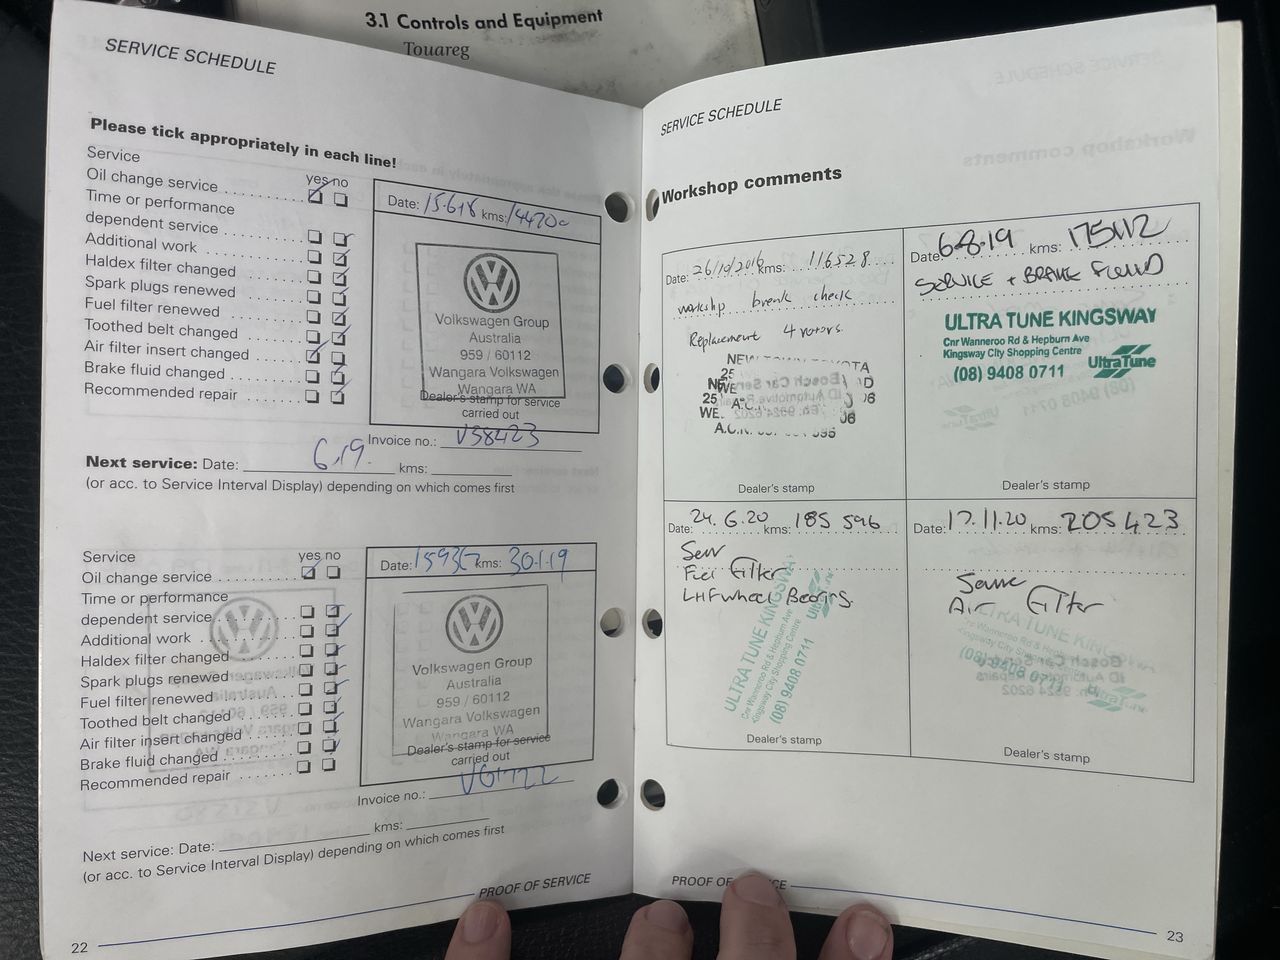 3.1 Controls and Equipment
Touareg
SERVICE SCHEDULE
Please tick appropriately in each line!
Service yes no
Oil change service
Time or performance
dependent service
Additional work
Haldex filter changed
Spark plugs renewed
Fuel filter renewed
Toothed belt changed
Air filter insert changed
Brake fluid changed
Recommended repair
Date: 15.6.18 kms: 144200
Volkswagen Group
Australia
959 / 60112
Wangara Volkswagen
Wangara WA
Dealer's stamp for service
carried out
Invoice no.: V58423
Next service: Date: 6.19. kms:
(or acc. to Service Interval Display) depending on which comes first
Service yes no
Oil change service
Time or performance
dependent service
Additional work
Haldex filter changed
Spark plugs renewed
Fuel filter renewed
Toothed belt changed
Air filter insert changed
Brake fluid changed
Recommended repair
Date: kms: 30.1.19
Volkswagen Group
Australia
959 / 60112
Wangara Volkswagen
Wangara WA
Dealer's stamp for service
carried out
Invoice no.:
Next service: Date: kms:
(or acc. to Service Interval Display) depending on which comes first
PROOF OF SERVICE
22
SERVICE SCHEDULE
Workshop comments
Date: 26/10/2016 kms: 116528
workshp break check
Replacement 4 rotors.
Dealer's stamp
Date: 6.8.19 kms: 175112
SERVICE + BRAKE FLUID
ULTRA TUNE KINGSWAY
Cnr Wanneroo Rd & Hepburn Ave
Kingsway City Shopping Centre
(08) 9408 0711
UltraTune
Dealer's stamp
Date: 24.6.20 kms: 185 596
Serv
Fuel Filter
LHF wheel Bearing.
ULTRA TUNE KINGSWAY
Cnr Wanneroo Rd & Hepburn Ave
Kingsway City Shopping Centre
(08) 9408 0711
UltraTune
Dealer's stamp
Date: 17.11.20 kms: 205 423
Air Filter
ULTRA TUNE KINGSWAY
(08) 9408 0711
UltraTune
Dealer's stamp
PROOF OF
23